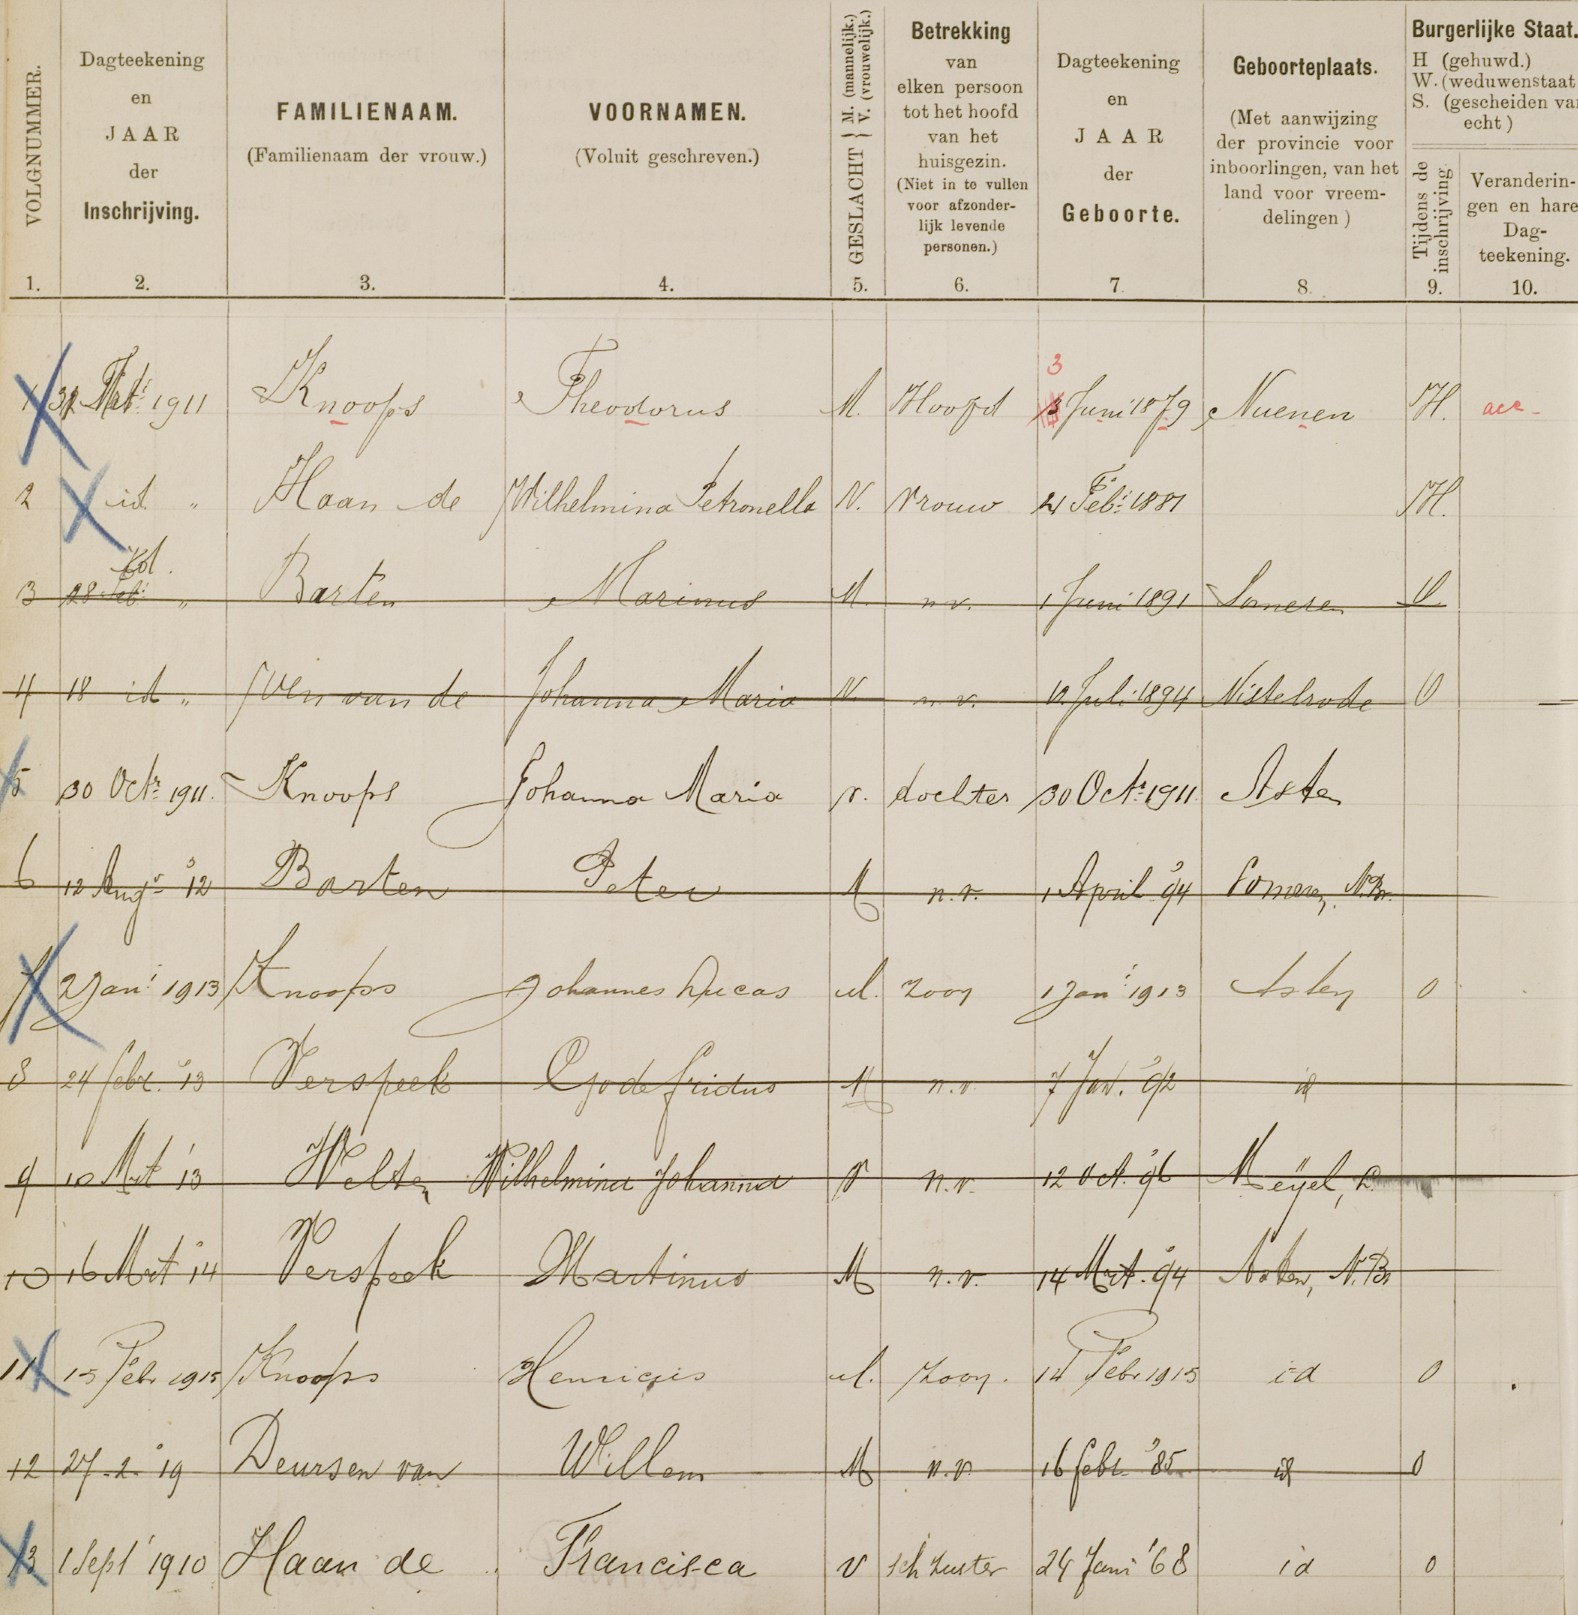 VOLGNUMMER.
Dagteekening en JAAR der Inschrijving.
FAMILIENAAM. (Familienaam der vrouw.)
VOORNAMEN. (Voluit geschreven.)
GESLACHT { M. (mannelijk.) V. (vrouwelijk.)
Betrekking van elken persoon tot het hoofd van het huisgezin. (Niet in te vullen voor afzonder-lijk levende personen.)
Dagteekening en JAAR der Geboorte.
Geboorteplaats. (Met aanwijzing der provincie voor inboorlingen, van het land voor vreem-delingen)
Burgerlijke Staat. H (gehuwd.) W. (weduwenstaat S. (gescheiden van echt)
Tijdens de inschrijving
Veranderin-gen en hare Dag-teekening.
1. 2. 3. 4. 5. 6. 7. 8. 9. 10.
3
1 1911 Knoops Theodorus M. Hoofd Juni 1879 Nuenen H. acc-
2 id " Haan de Wilhelmina Petronella V. Vrouw 21 Feb: 1881 H.
3 28 Feb: " Barten Marinus M. n.v. 1 Juni 1891 Someren O
4 18 id " Ven van de Johanna Maria V. n.v. Juli 1894 Nistelrode O
5 30 Octr. 1911. Knoops Johanna Maria v. dochter 30 Octr. 1911 Asten
6 12 Augs '12 Barten Peter M n.v. 1 April '94 Someren, N.Br.
7 2 Jan: 1913 Knoops Johannes Lucas M. zoon 1 Jan: 1913 Asten O
8 24 febr. '13 Verspeek Godefridus M n.v. 7 Jan. '92 id
9 10 Mrt '13 Welten Wilhelmina Johanna V n.v. 12 Oct. '96 Meijel, L.
10 16 Mrt '14 Verspeek Martinus M n.v. 14 Mrt. '94 Asten, N.Br
11 15 Febr 1915 Knoops Henricus M. zoon. 14 Febr 1915 id O
12 27-2-'19 Deursen van Willem M n.v. 16 febr. '85 id O
13 1 Sept 1910 Haan de Francisca V sch zuster 24 Juni '68 id O